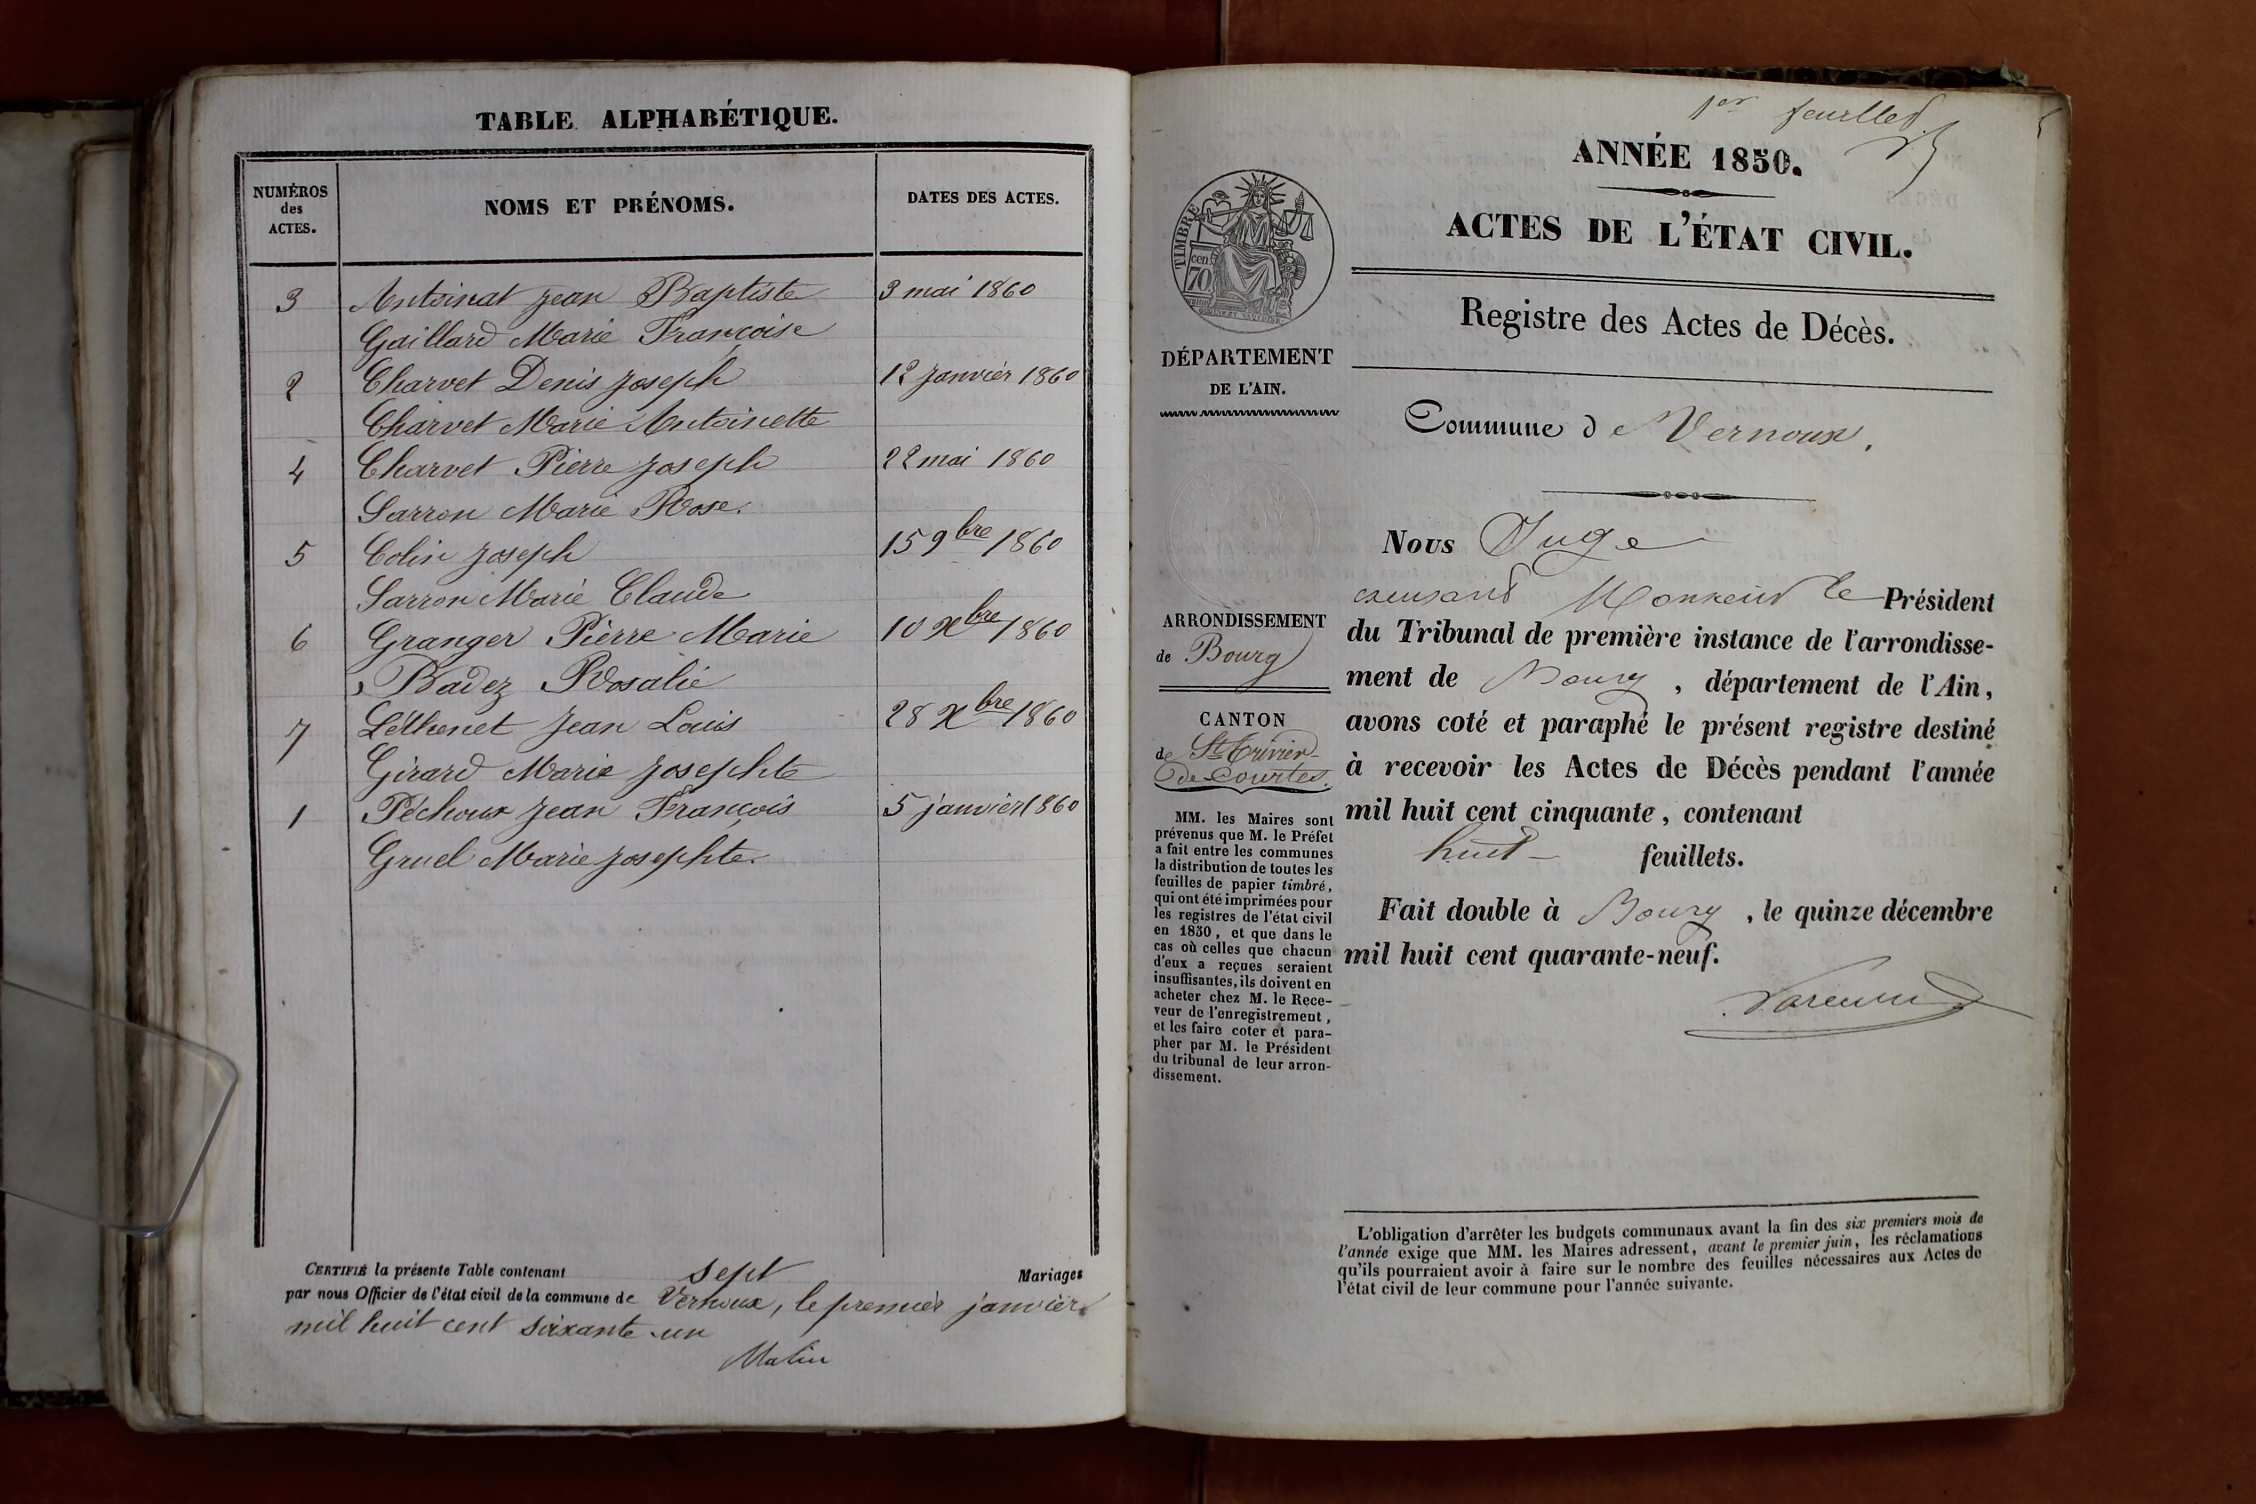 TABLE ALPHABÉTIQUE.
NUMÉROS
des
ACTES.
NOMS ET PRÉNOMS.
DATES DES ACTES.
3 Antoinat Jean Baptiste 3 mai 1860
Gaillard Marie Françoise
2 Charvet Denis Joseph 12 Janvier 1860
Charvet Marie Antoinette
4 Charvet Pierre Joseph 22 mai 1860
Sarron Marie Rose.
5 Colin Joseph 15 9bre 1860
Sarron Marie Claude
6 Granger Pierre Marie 10 Xbre 1860
Badez Rosalie
7 Léthenet Jean Louis 28 Xbre 1860
Girard Marie Josephte
1 Péchoux Jean François 5 janvier 1860
Gruel Marie Josephte.
CERTIFIÉ la présente Table contenant sept Mariages
par nous Officier de l'état civil de la commune de Vernoux, le premier janvier
mil huit cent soixante un
Matin
1er feuillet
ANNÉE 1850.
ACTES DE L'ÉTAT CIVIL.
Registre des Actes de Décès.
TIMBRE
70
cen
DÉPARTEMENT
DE L'AIN.
ARRONDISSEMENT
de Bourg
CANTON
de St Trivier
de Courtes.
MM. les Maires sont
prévenus que M. le Préfet
a fait entre les communes
la distribution de toutes les
feuilles de papier timbré,
qui ont été imprimées pour
les registres de l'état civil
en 1850, et que dans le
cas où celles que chacun
d'eux a reçues seraient
insuffisantes, ils doivent en
acheter chez M. le Rece-
veur de l'enregistrement,
et les faire coter et para-
pher par M. le Président
du tribunal de leur arron-
dissement.
Commune de Vernoux.
Nous Juge
Monsieur le Président
du Tribunal de première instance de l'arrondisse-
ment de Bourg, département de l'Ain,
avons coté et paraphé le présent registre destiné
à recevoir les Actes de Décès pendant l'année
mil huit cent cinquante, contenant
huit feuillets.
Fait double à Bourg, le quinze décembre
mil huit cent quarante-neuf.
L'obligation d'arrêter les budgets communaux avant la fin des six premiers mois de
l'année exige que MM. les Maires adressent, avant le premier juin, les réclamations
qu'ils pourraient avoir à faire sur le nombre des feuilles nécessaires aux Actes de
l'état civil de leur commune pour l'année suivante.